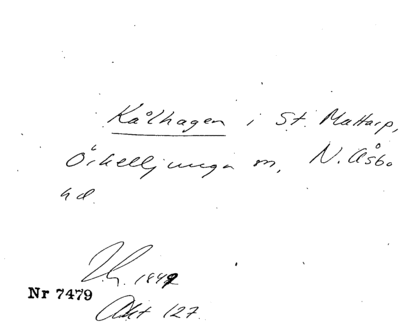 Kålhagen i St. Mattarp,
Örkelljunga m, N. Åsbo
hd.
1842
Nr 7479
Akt 127.